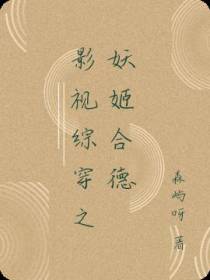 影视综穿之
妖姬合德
森屿呀 著